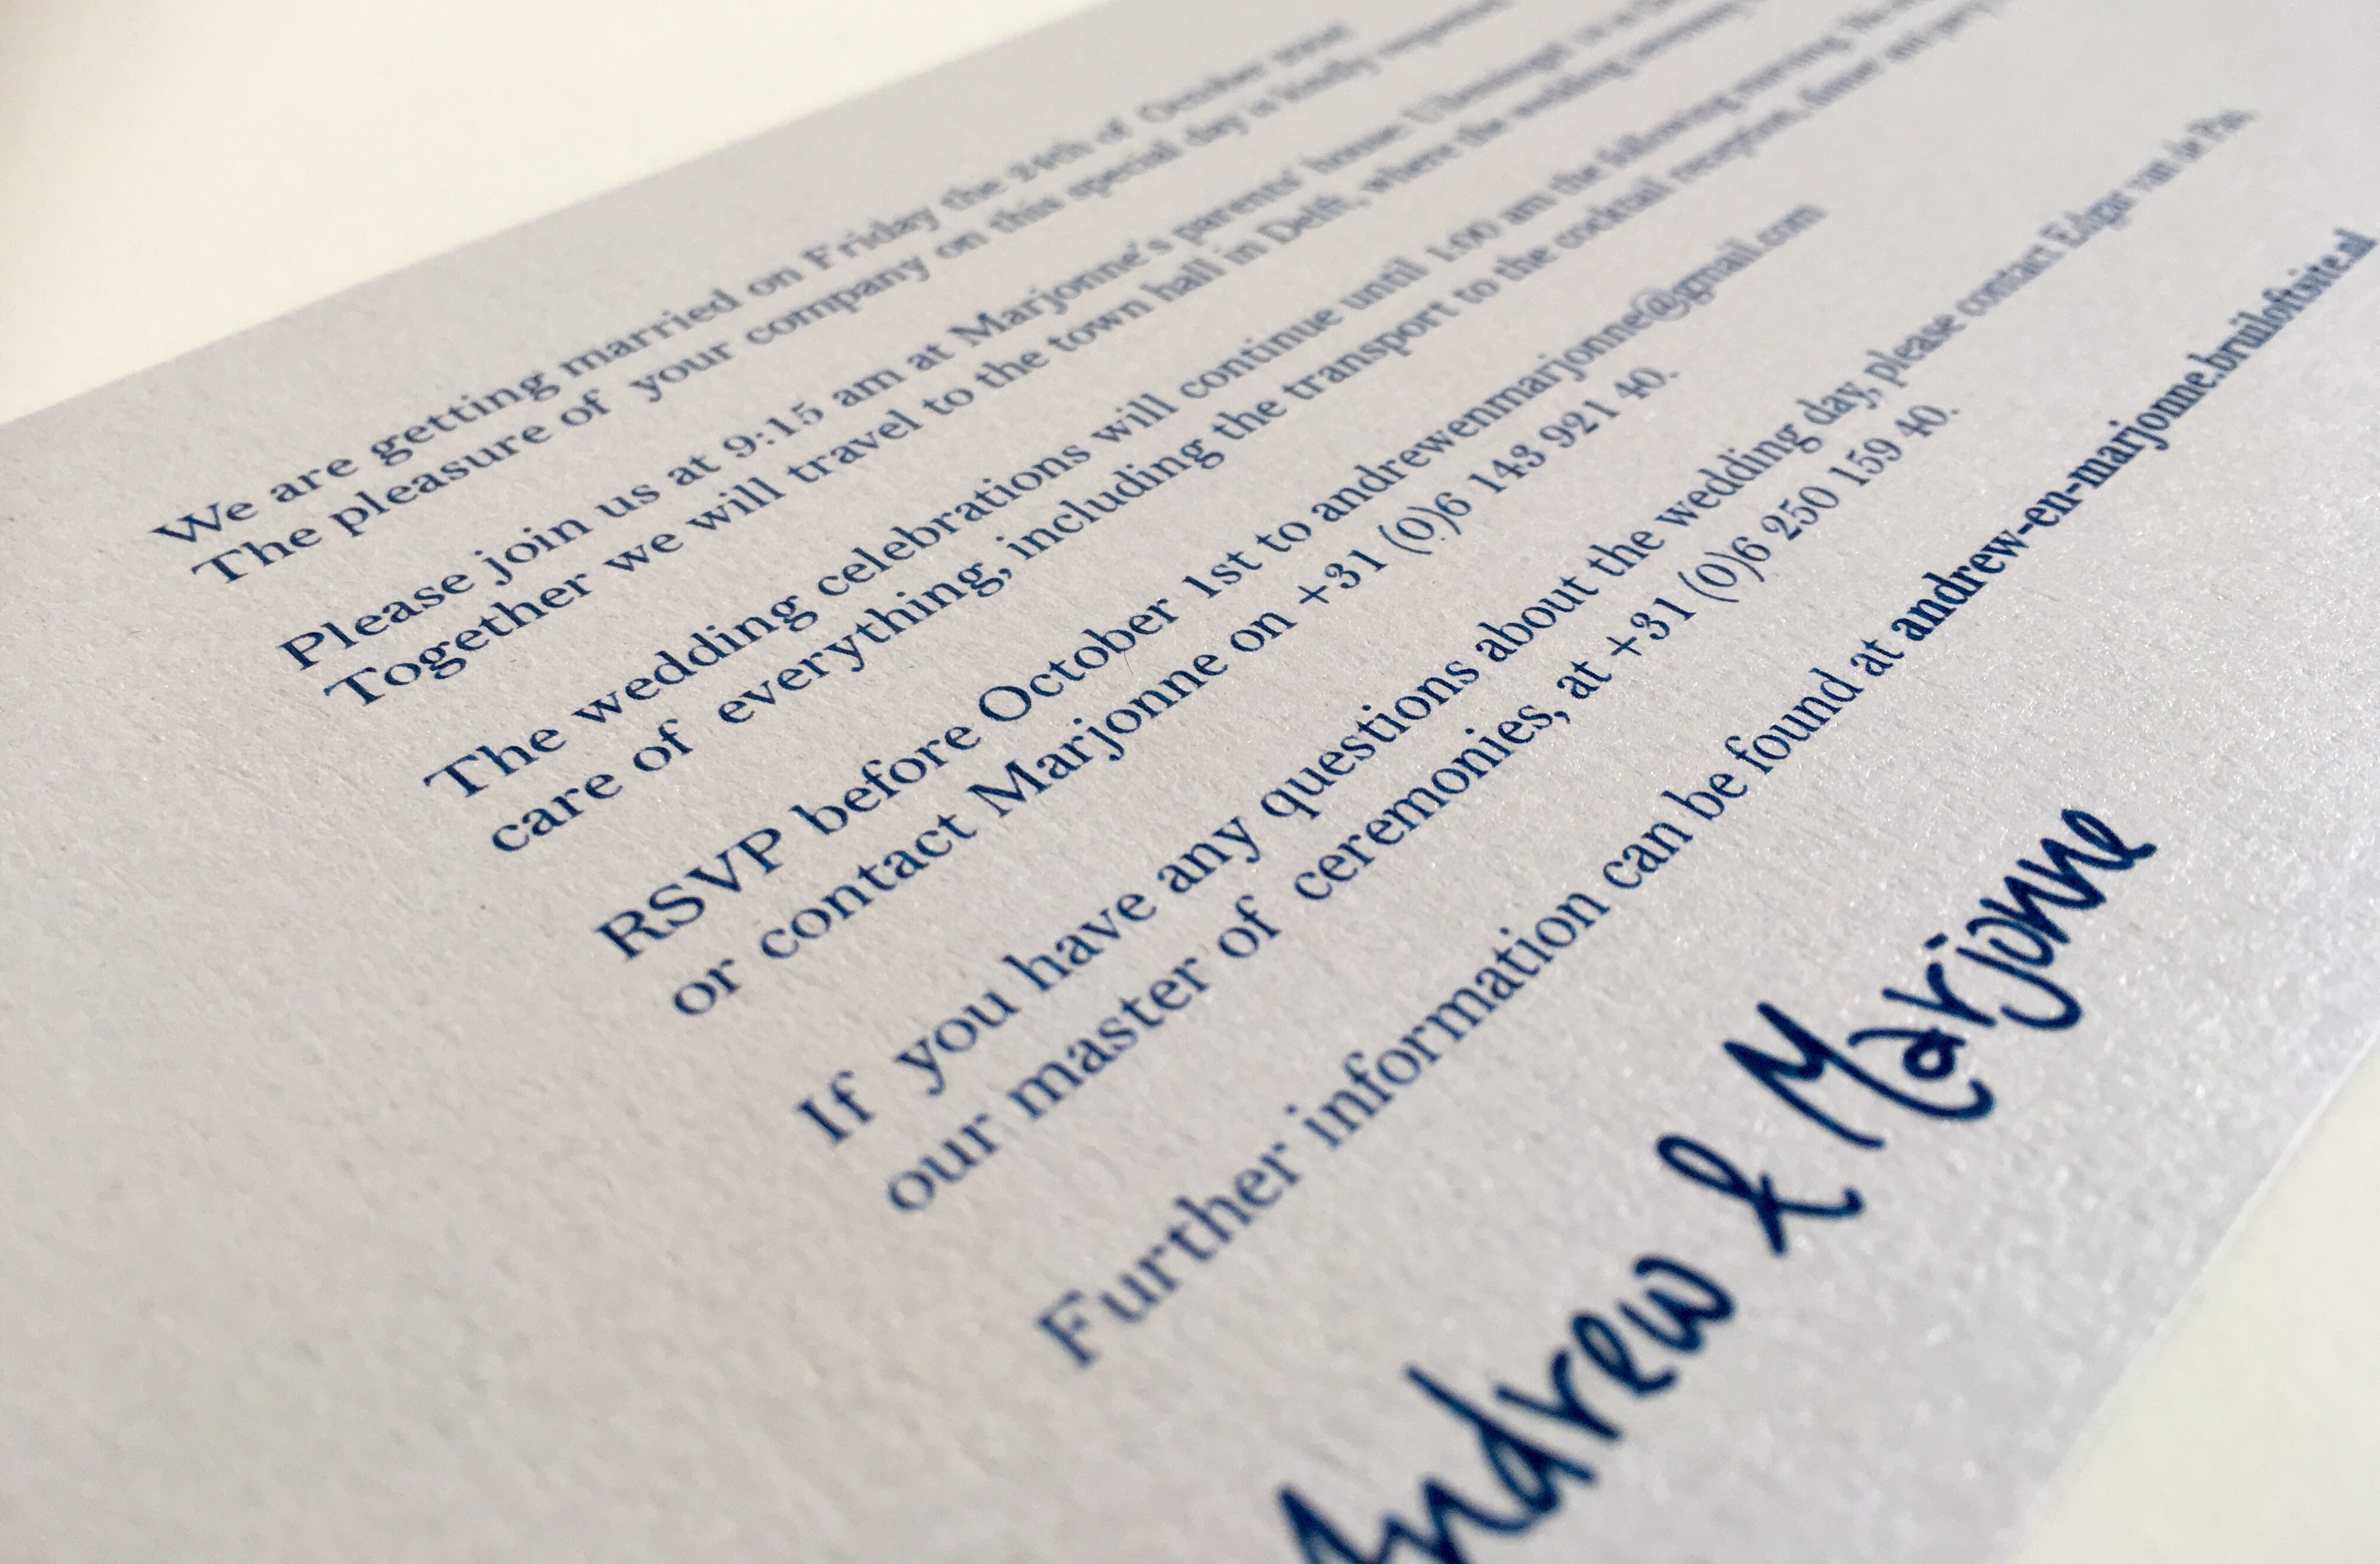 We are getting married on Friday the 24th of October
The pleasure of your company on this special day is kindly requested
Please join us at 9:15 am at Marjonne's parents' house
Together we will travel to the town hall in Delft, where the wedding ceremony
The wedding celebrations will continue until 1.00 am the following morning.
care of everything, including the transport to the cocktail reception, dinner and party
RSVP before October 1st to andrewenmarjonne@gmail.com
or contact Marjonne on +31 (0)6 143 921 40.
If you have any questions about the wedding day, please contact Edgar van de Pas,
our master of ceremonies, at +31 (0)6 250 159 40.
Further information can be found at andrew-en-marjonne.bruiloftsite.nl
Andrew & Marjonne